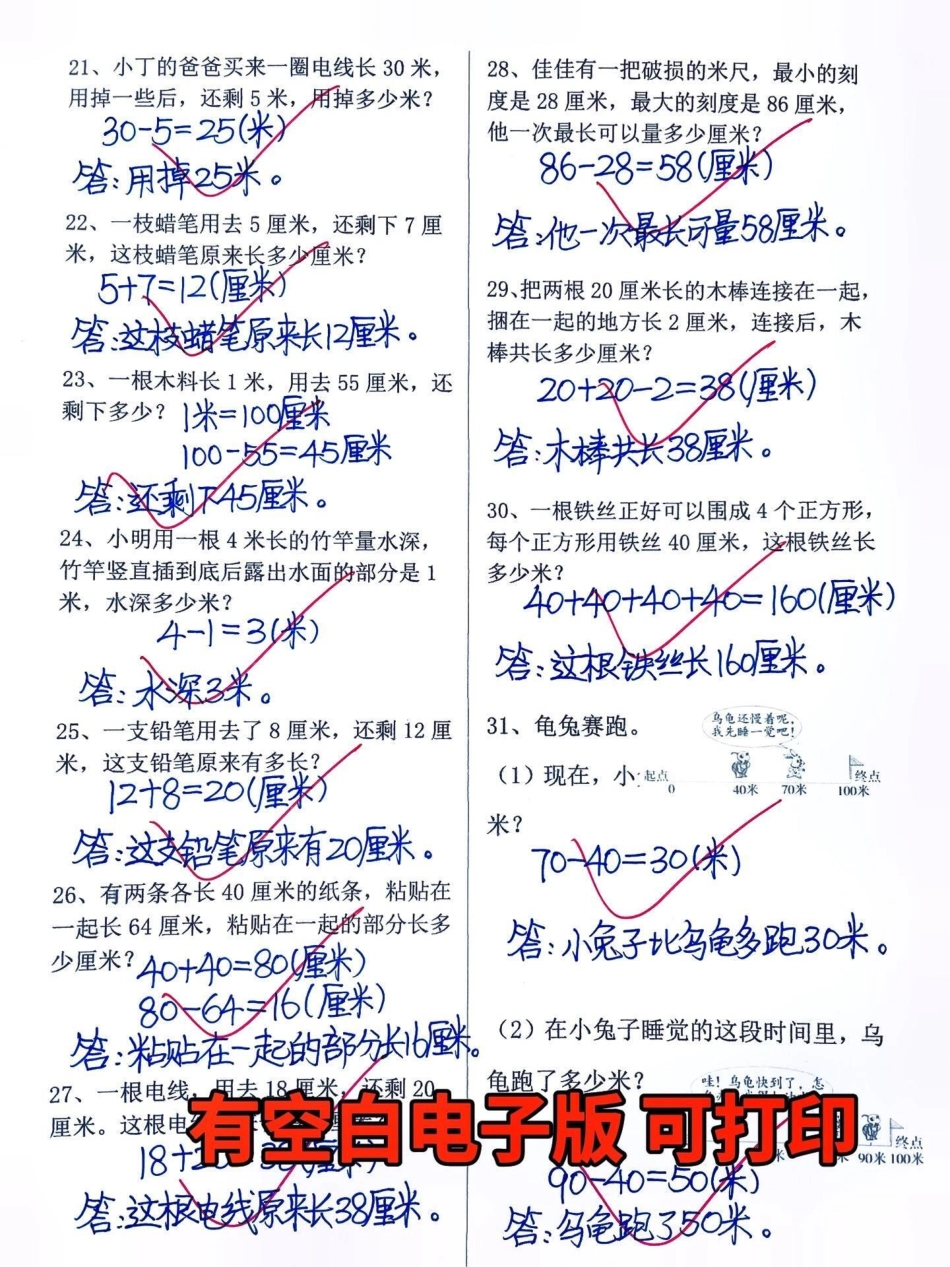 21、小丁的爸爸买来一圈电线长 30 米，
用掉一些后，还剩 5 米，用掉多少米？
30-5=25(米)
答:用掉25米。
22、一枝蜡笔用去 5 厘米，还剩下 7 厘
米，这枝蜡笔原来长多少厘米？
5+7=12(厘米)
答:这枝蜡笔原来长12厘米。
23、一根木料长 1 米，用去 55 厘米，还
剩下多少？ 1米=100厘米
100-55=45厘米
答:还剩下45厘米。
24、小明用一根 4 米长的竹竿量水深，
竹竿竖直插到底后露出水面的部分是 1
米，水深多少米？
4-1=3(米)
答:水深3米。
25、一支铅笔用去了 8 厘米，还剩 12 厘
米，这支铅笔原来有多长？
12+8=20(厘米)
答:这支铅笔原来有20厘米。
26、有两条各长 40 厘米的纸条，粘贴在
一起长 64 厘米，粘贴在一起的部分长多
少厘米？ 40+40=80(厘米)
80-64=16(厘米)
答:粘贴在一起的部分长16厘米。
27、一根电线，用去 18 厘米，还剩 20
厘米。这根电
18+
答:这根电线原来长38厘米。
28、佳佳有一把破损的米尺，最小的刻
度是 28 厘米，最大的刻度是 86 厘米，
他一次最长可以量多少厘米？
86-28=58(厘米)
答:他一次最长可量58厘米。
29、把两根 20 厘米长的木棒连接在一起，
捆在一起的地方长 2 厘米，连接后，木
棒共长多少厘米？
20+20-2=38(厘米)
答:木棒共长38厘米。
30、一根铁丝正好可以围成 4 个正方形，
每个正方形用铁丝 40 厘米，这根铁丝长
多少米？
40+40+40+40=160(厘米)
答:这根铁丝长160厘米。
31、龟兔赛跑。
乌龟还慢着呢，
我先睡一觉吧！
（1）现在，小
起点 终点
0 40米 70米 100米
米？
70-40=30(米)
答:小兔子比乌龟多跑30米。
（2）在小兔子睡觉的这段时间里，乌
龟跑了多少米？
哇！乌龟快到了，怎
有空白电子版 可打印
终点
米 米 90米 100米
90-40=50(米)
答:乌龟跑了50米。